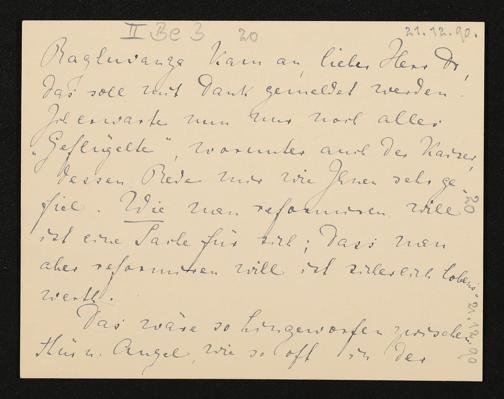 II Be 3 20 21.12.90.
Raghuvança kam an, lieber Herr Dr,
das soll mit Dank gemeldet werden.
Ich erwarte nun nur noch alles
„Geflügelte“, worunter auch der Kaiser,
dessen Rede mir wie Ihnen sehr ge-
fiel. Wie man reformiren will
ist eine Sache für sich; dass man
aber reformiren will ist sicherlich lobens-
werth.
Das wäre so hingeworfen zwischen
Thür u. Angel, wie so oft in der
20
21.12.90